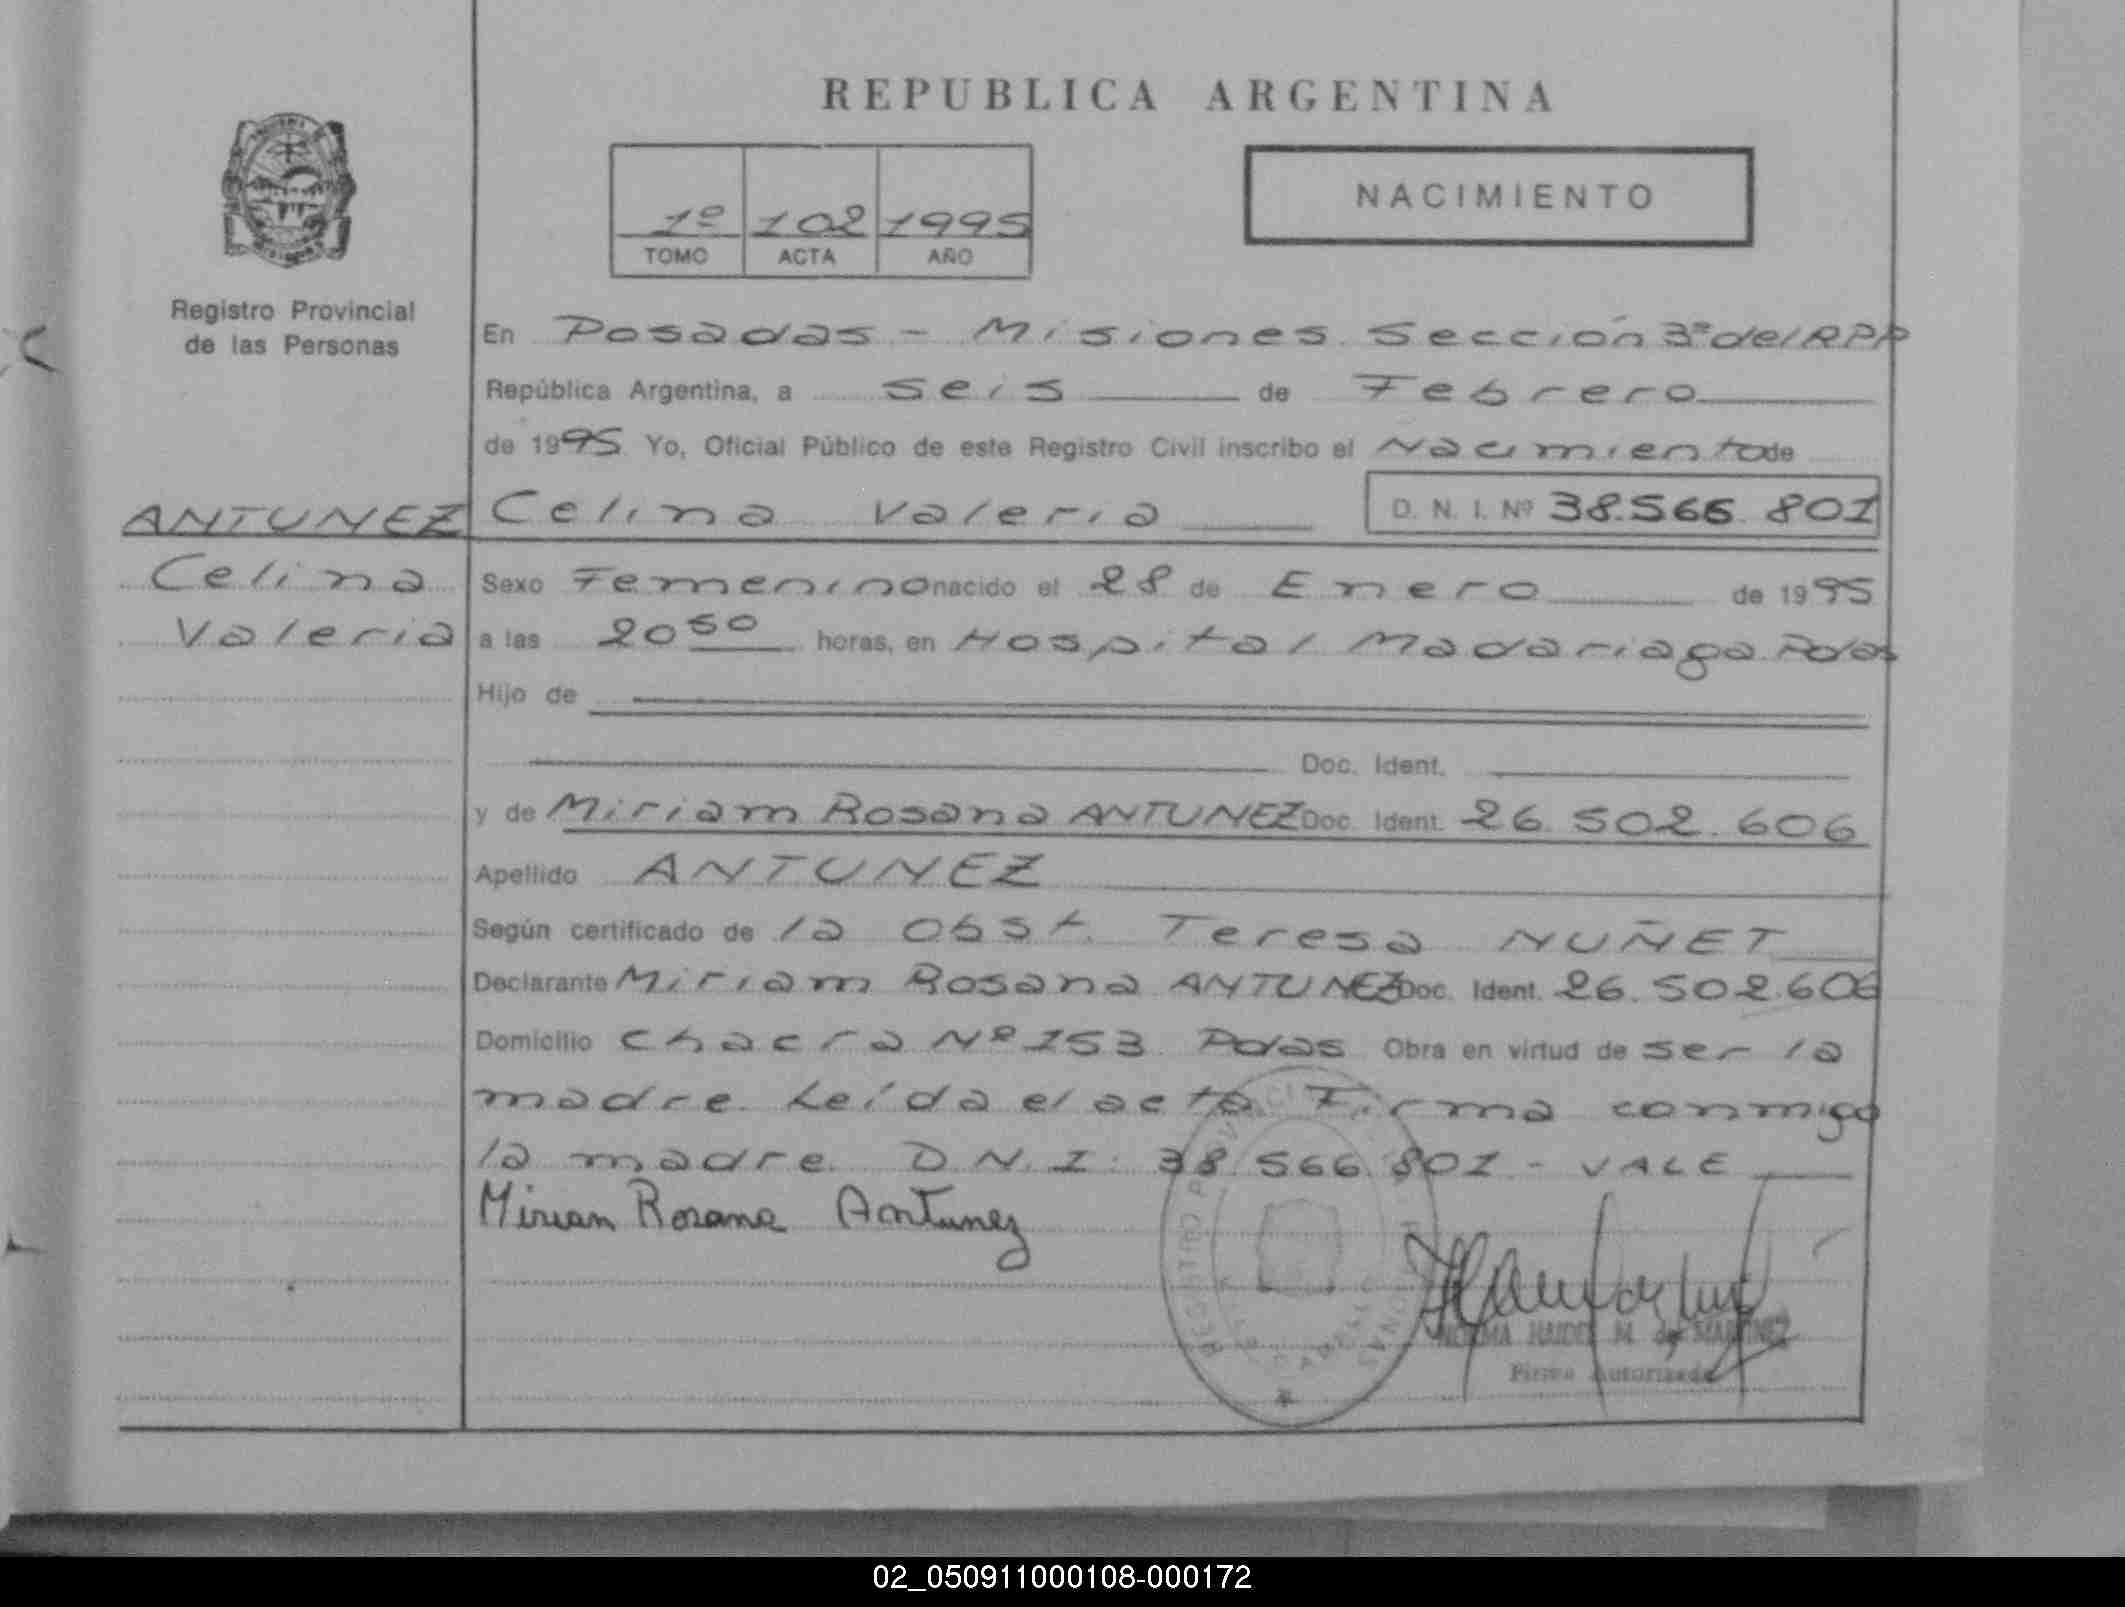 REPUBLICA ARGENTINA
NACIMIENTO
1º 102 1995
TOMO ACTA AÑO
Registro Provincial
de las Personas
En Posadas - Misiones Sección 3ª del RPP
República Argentina, a seis de Febrero
de 1995 Yo, Oficial Público de este Registro Civil inscribo el Nacimiento de
ANTUNEZ Celina Valeria D. N. I. Nº 38.566.801
Celina Sexo Femenino nacido el 28 de Enero de 1995
Valeria a las 20 50 horas, en Hospital Madariaga Pdas
Hijo de
Doc. Ident.
y de Miriam Rosana ANTUNEZ Doc. Ident. 26.502.606
Apellido ANTUNEZ
Según certificado de la Obst. Teresa NUÑET
Declarante Miriam Rosana ANTUNEZ Doc. Ident. 26.502.606
Domicilio Chacra Nº 153 Pdas Obra en virtud de ser la
madre. Leída el acta Firma conmigo
la madre. D.N.I. 38.566.801 - VALE
Mirian Rosana Antunez
REGISTRO PROVINCIAL
PERSONAS
NORMA HAIDEE M. de MARTINEZ
Firma Autorizada
02_050911000108-000172